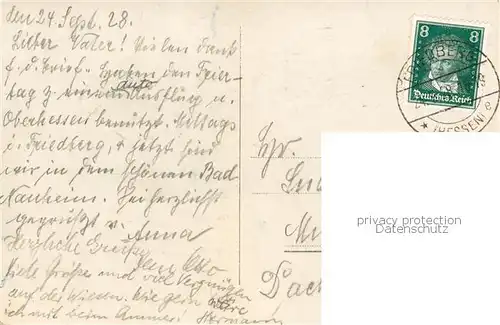 den 24. Sept. 28.
Lieber Vater! Vielen Dank
f. d. Brief. Haben den Feier-
tag z. einem Auto Ausflug n.
Oberhessen benützt. Mittags
in Friedberg, & jetzt sind
wir in dem schönen Bad
Nauheim. Sei herzlichst
gegrüsst v. Anna
Herzliche Grüße
Otto
Viele Grüße und viel Vergnügen
auf der Wiesen. Wie gern wäre
ich mit beim Ammer!
Hermann
8 8
Deutsches Reich
(HESSEN)
e
privacy protection
www.ansichtskartenversand.com